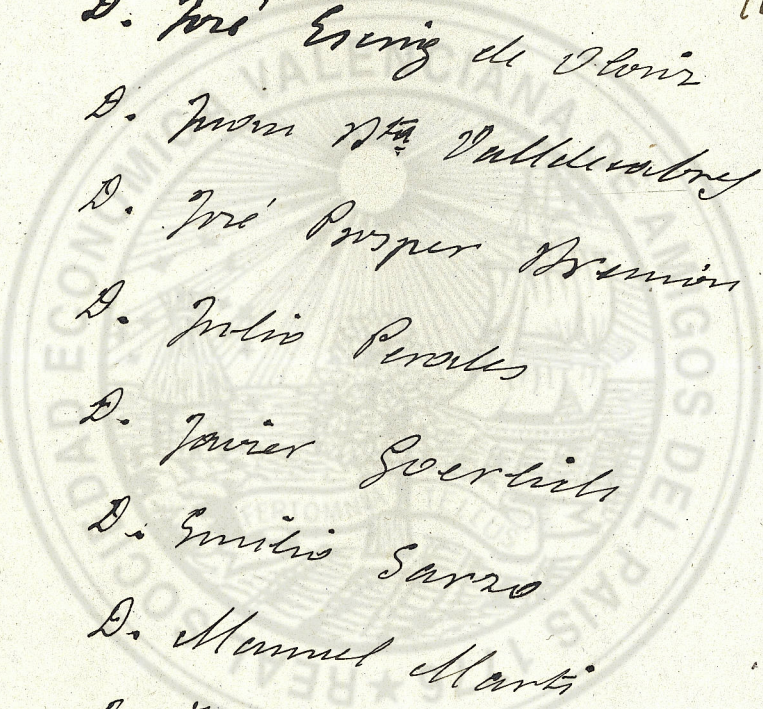 D. José de
D. Juan Bta Valldecabres
D. José Prosper Bremón
D. Julio Perales
D. Javier Goerlich
D. Emilio Sarzo
D. Manuel Marti
REAL SOCIEDAD ECONOMICA VALENCIANA DE AMIGOS DEL PAIS